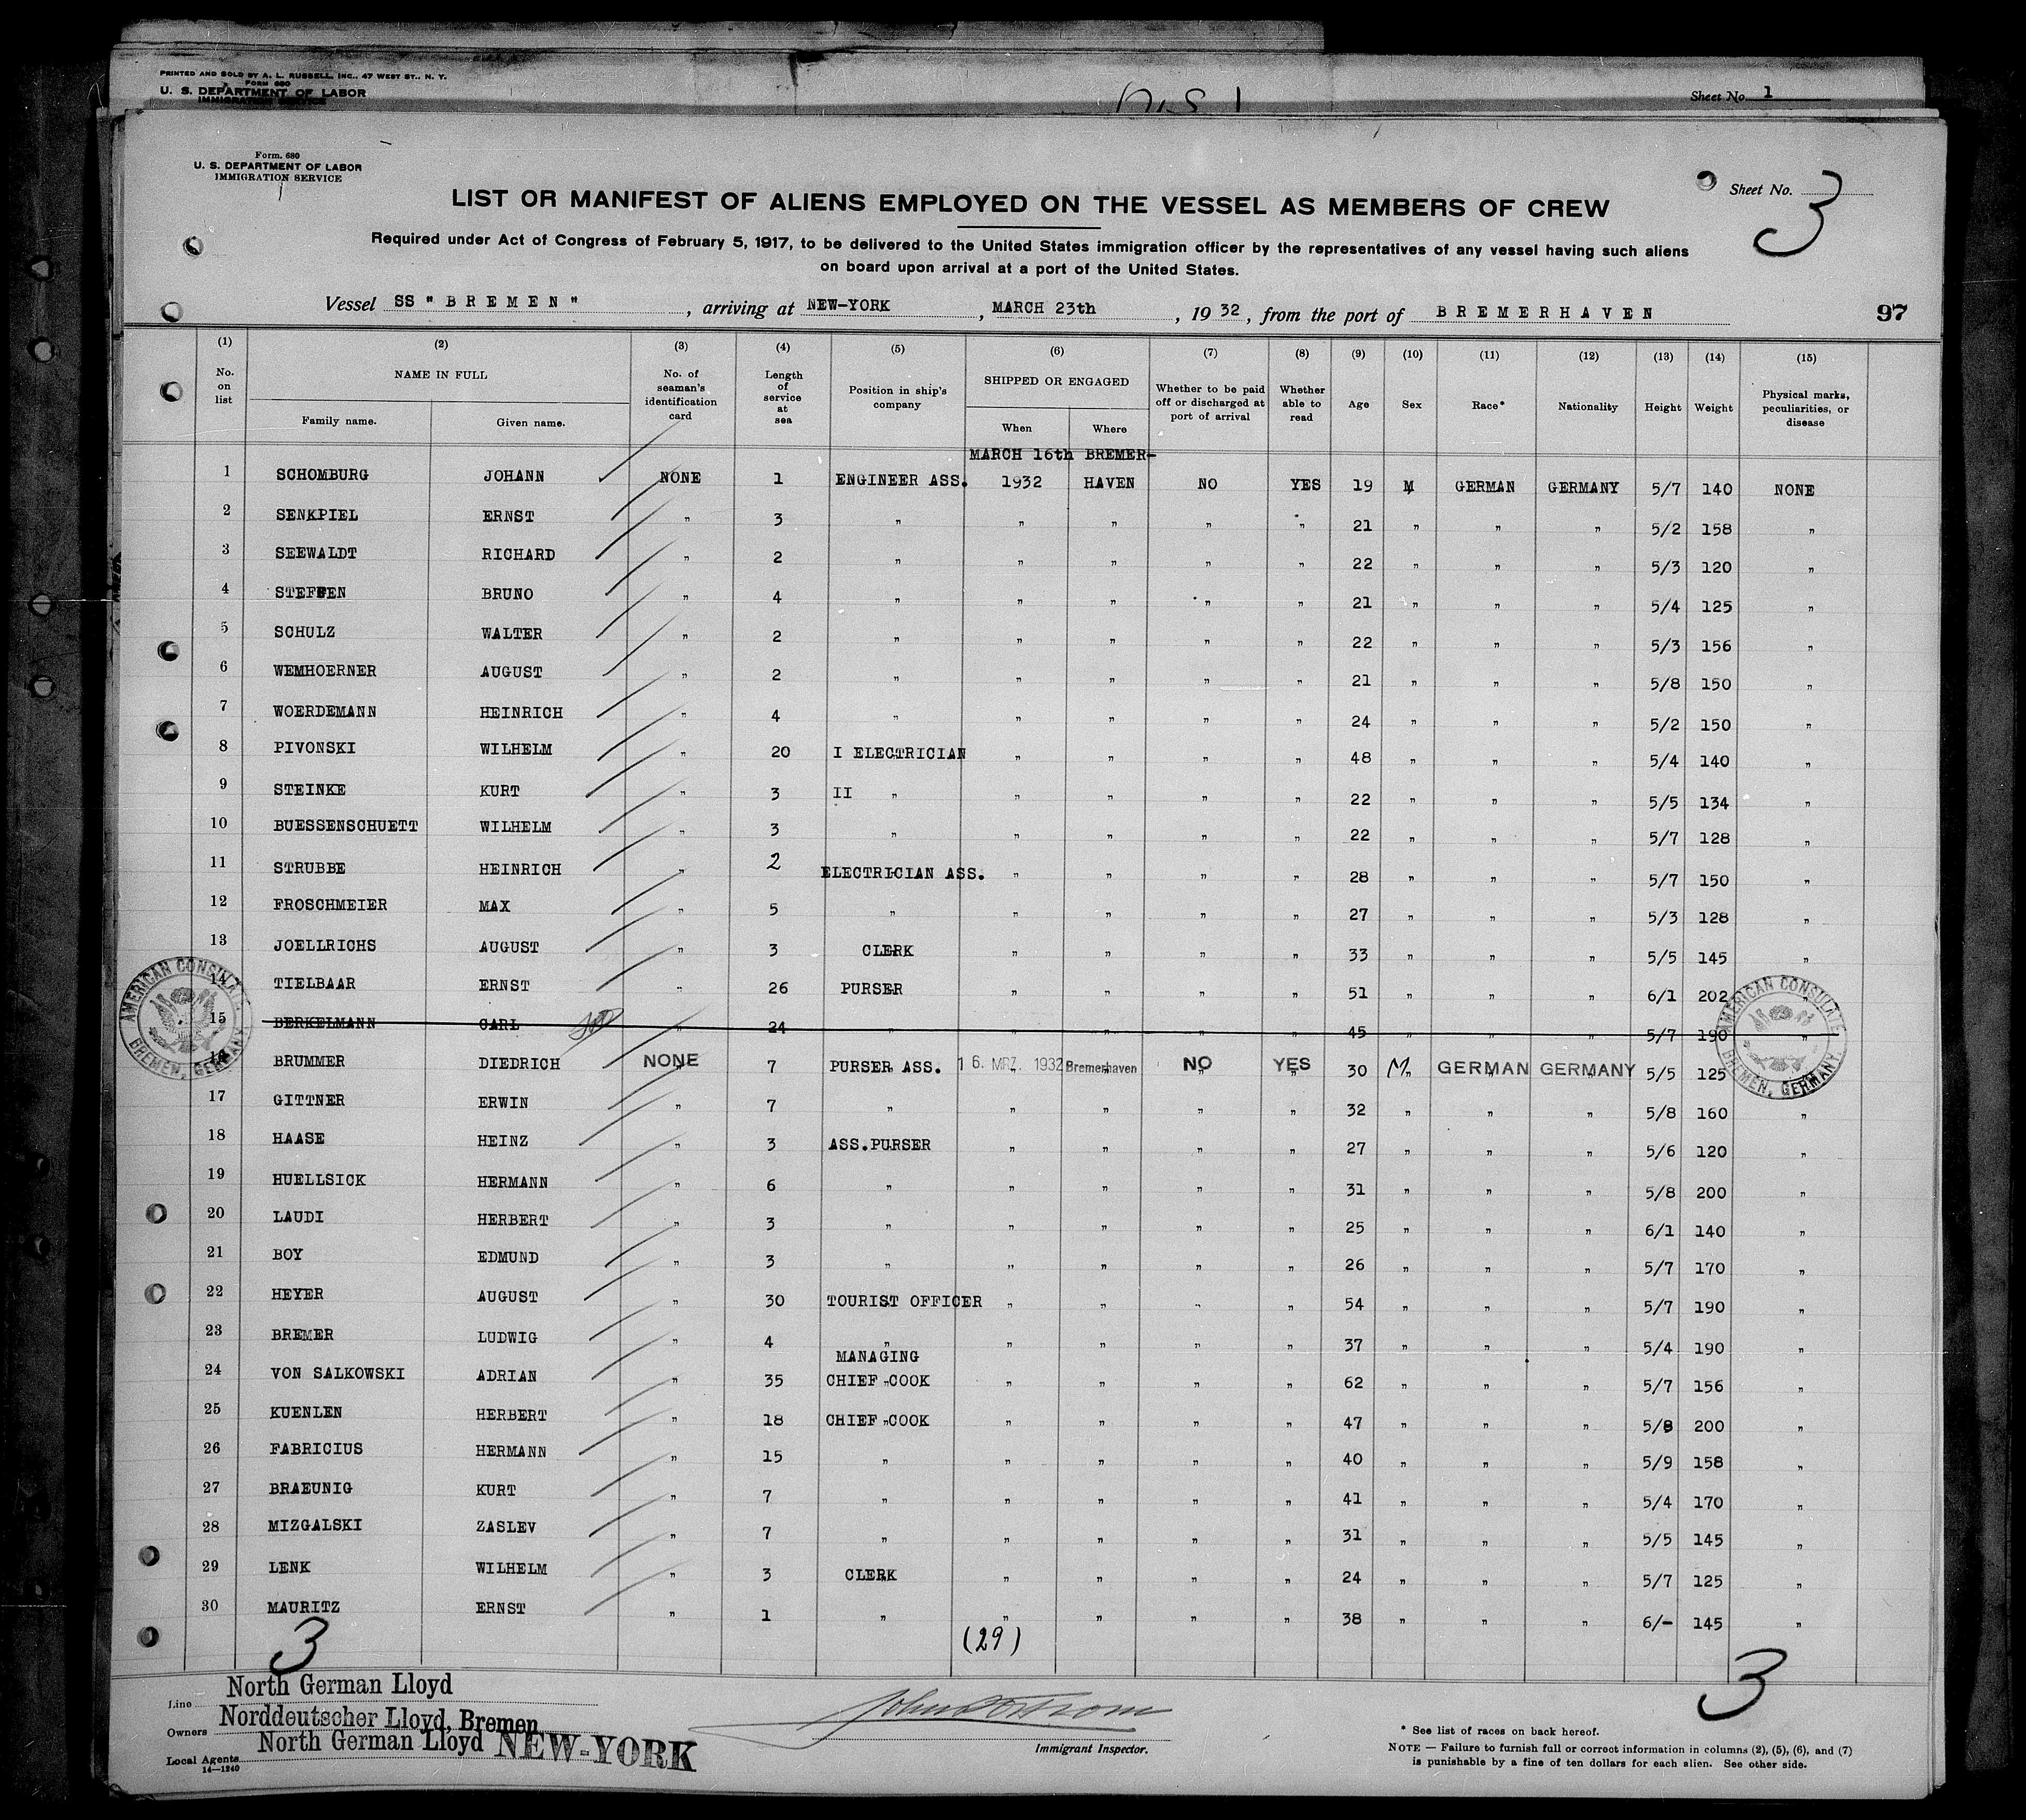 PRINTED AND SOLD BY A. L. RUSSELL, INC., 47 WEST ST., N. Y.
Form 680
U. S. DEPARTMENT OF LABOR
IMMIGRATION SERVICE
Sheet No. 1
Form. 680
U. S. DEPARTMENT OF LABOR
IMMIGRATION SERVICE
Sheet No. 3
LIST OR MANIFEST OF ALIENS EMPLOYED ON THE VESSEL AS MEMBERS OF CREW
Required under Act of Congress of February 5, 1917, to be delivered to the United States immigration officer by the representatives of any vessel having such aliens
on board upon arrival at a port of the United States.
Vessel SS "BREMEN", arriving at NEW-YORK, MARCH 23th, 1932, from the port of BREMERHAVEN
97
(1) (2) (3) (4) (5) (6) (7) (8) (9) (10) (11) (12) (13) (14) (15)
No. on list NAME IN FULL Family name. Given name. No. of seaman's identification card Length of service at sea Position in ship's company SHIPPED OR ENGAGED When Where Whether to be paid off or discharged at port of arrival Whether able to read Age Sex Race* Nationality Height Weight Physical marks, peculiarities, or disease
MARCH 16th BREMER-
1 SCHOMBURG JOHANN NONE 1 ENGINEER ASS. 1932 HAVEN NO YES 19 M GERMAN GERMANY 5/7 140 NONE
2 SENKPIEL ERNST " 3 " " " " " 21 " " " 5/2 158 "
3 SEEWALDT RICHARD " 2 " " " " " 22 " " " 5/3 120 "
4 STEFFEN BRUNO " 4 " " " " " 21 " " " 5/4 125 "
5 SCHULZ WALTER " 2 " " " " " 22 " " " 5/3 156 "
6 WEMHOERNER AUGUST " 2 " " " " " 21 " " " 5/8 150 "
7 WOERDEMANN HEINRICH " 4 " " " " " 24 " " " 5/2 150 "
8 PIVONSKI WILHELM " 20 I ELECTRICIAN " " " " 48 " " " 5/4 140 "
9 STEINKE KURT " 3 II " " " " " 22 " " " 5/5 134 "
10 BUESSENSCHUETT WILHELM " 3 " " " " " 22 " " " 5/7 128 "
11 STRUBBE HEINRICH " 2 ELECTRICIAN ASS. " " " " 28 " " " 5/7 150 "
12 FROSCHMEIER MAX " 5 " " " " " 27 " " " 5/3 128 "
13 JOELLRICHS AUGUST " 3 CLERK " " " " 33 " " " 5/5 145 "
14 TIELBAAR ERNST " 26 PURSER " " " " 51 " " " 6/1 202 "
15 BERKELMANN CARL " 24 " " " " " 45 " " " 5/7 190 "
16 BRUMMER DIEDRICH NONE 7 PURSER ASS. 16. MRZ. 1932 Bremerhaven NO YES 30 M GERMAN GERMANY 5/5 125 "
17 GITTNER ERWIN " 7 " " " " " 32 " " " 5/8 160 "
18 HAASE HEINZ " 3 ASS.PURSER " " " " 27 " " " 5/6 120 "
19 HUELLSICK HERMANN " 6 " " " " " 31 " " " 5/8 200 "
20 LAUDI HERBERT " 3 " " " " " 25 " " " 6/1 140 "
21 BOY EDMUND " 3 " " " " " 26 " " " 5/7 170 "
22 HEYER AUGUST " 30 TOURIST OFFICER " " " " 54 " " " 5/7 190 "
23 BREMER LUDWIG " 4 " " " " " 37 " " " 5/4 190 "
MANAGING
24 VON SALKOWSKI ADRIAN " 35 CHIEF COOK " " " " 62 " " " 5/7 156 "
25 KUENLEN HERBERT " 18 CHIEF COOK " " " " 47 " " " 5/8 200 "
26 FABRICIUS HERMANN " 15 " " " " " 40 " " " 5/9 158 "
27 BRAEUNIG KURT " 7 " " " " " 41 " " " 5/4 170 "
28 MIZGALSKI ZASLEV " 7 " " " " " 31 " " " 5/5 145 "
29 LENK WILHELM " 3 CLERK " " " " 24 " " " 5/7 125 "
30 MAURITZ ERNST " 1 " " " " " 38 " " " 6/- 145 "
AMERICAN CONSULATE BREMEN, GERMANY.
AMERICAN CONSULATE BREMEN, GERMANY.
3 (29) 3
Line North German Lloyd
Owners Norddeutscher Lloyd, Bremen
Local Agents North German Lloyd NEW-YORK
14—1240
Immigrant Inspector.
* See list of races on back hereof.
NOTE — Failure to furnish full or correct information in columns (2), (5), (6), and (7)
is punishable by a fine of ten dollars for each alien. See other side.